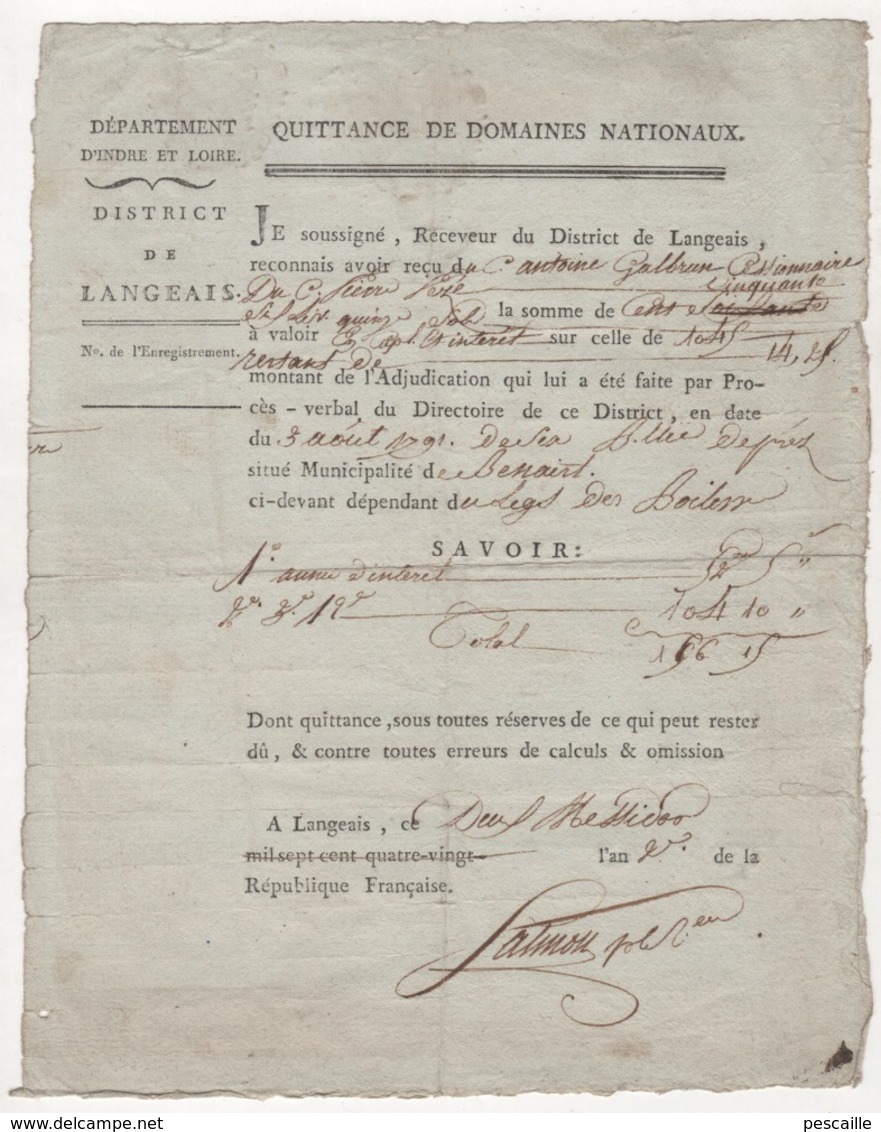 DÉPARTEMENT
D'INDRE ET LOIRE.
DISTRICT
DE
LANGEAIS.
No. de l'Enregistrement.
QUITTANCE DE DOMAINES NATIONAUX.
JE soussigné, Receveur du District de Langeais,
reconnais avoir reçu du C. antoine Galbrun Cessionnaire
Du C. Pierre cinquante
Six Liv. quinze Sols la somme de Cent soixante
à valoir En Capl. Et interet sur celle de 1045
restant de
montant de l'Adjudication qui lui a été faite par Pro-
cès-verbal du Directoire de ce District, en date
du 3 août 1791. de prés
situé Municipalité de Benaist.
ci-devant dépendant du Legs des
SAVOIR:
1° annee d'interet 52 5 "
104 10 "
Total 156 15
Dont quittance, sous toutes réserves de ce qui peut rester
dû, & contre toutes erreurs de calculs & omission
A Langeais, ce Deux Messidor
mil sept cent quatre-vingt l'an 2e. de la
République Française.
Salmon
pescaille